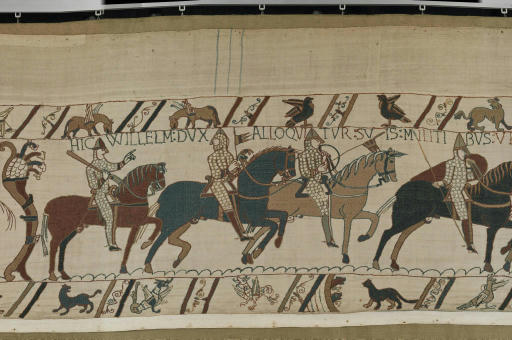 HIC WILLELM: DVX ALLOQVITVR SVIS: MILITIBVS: V